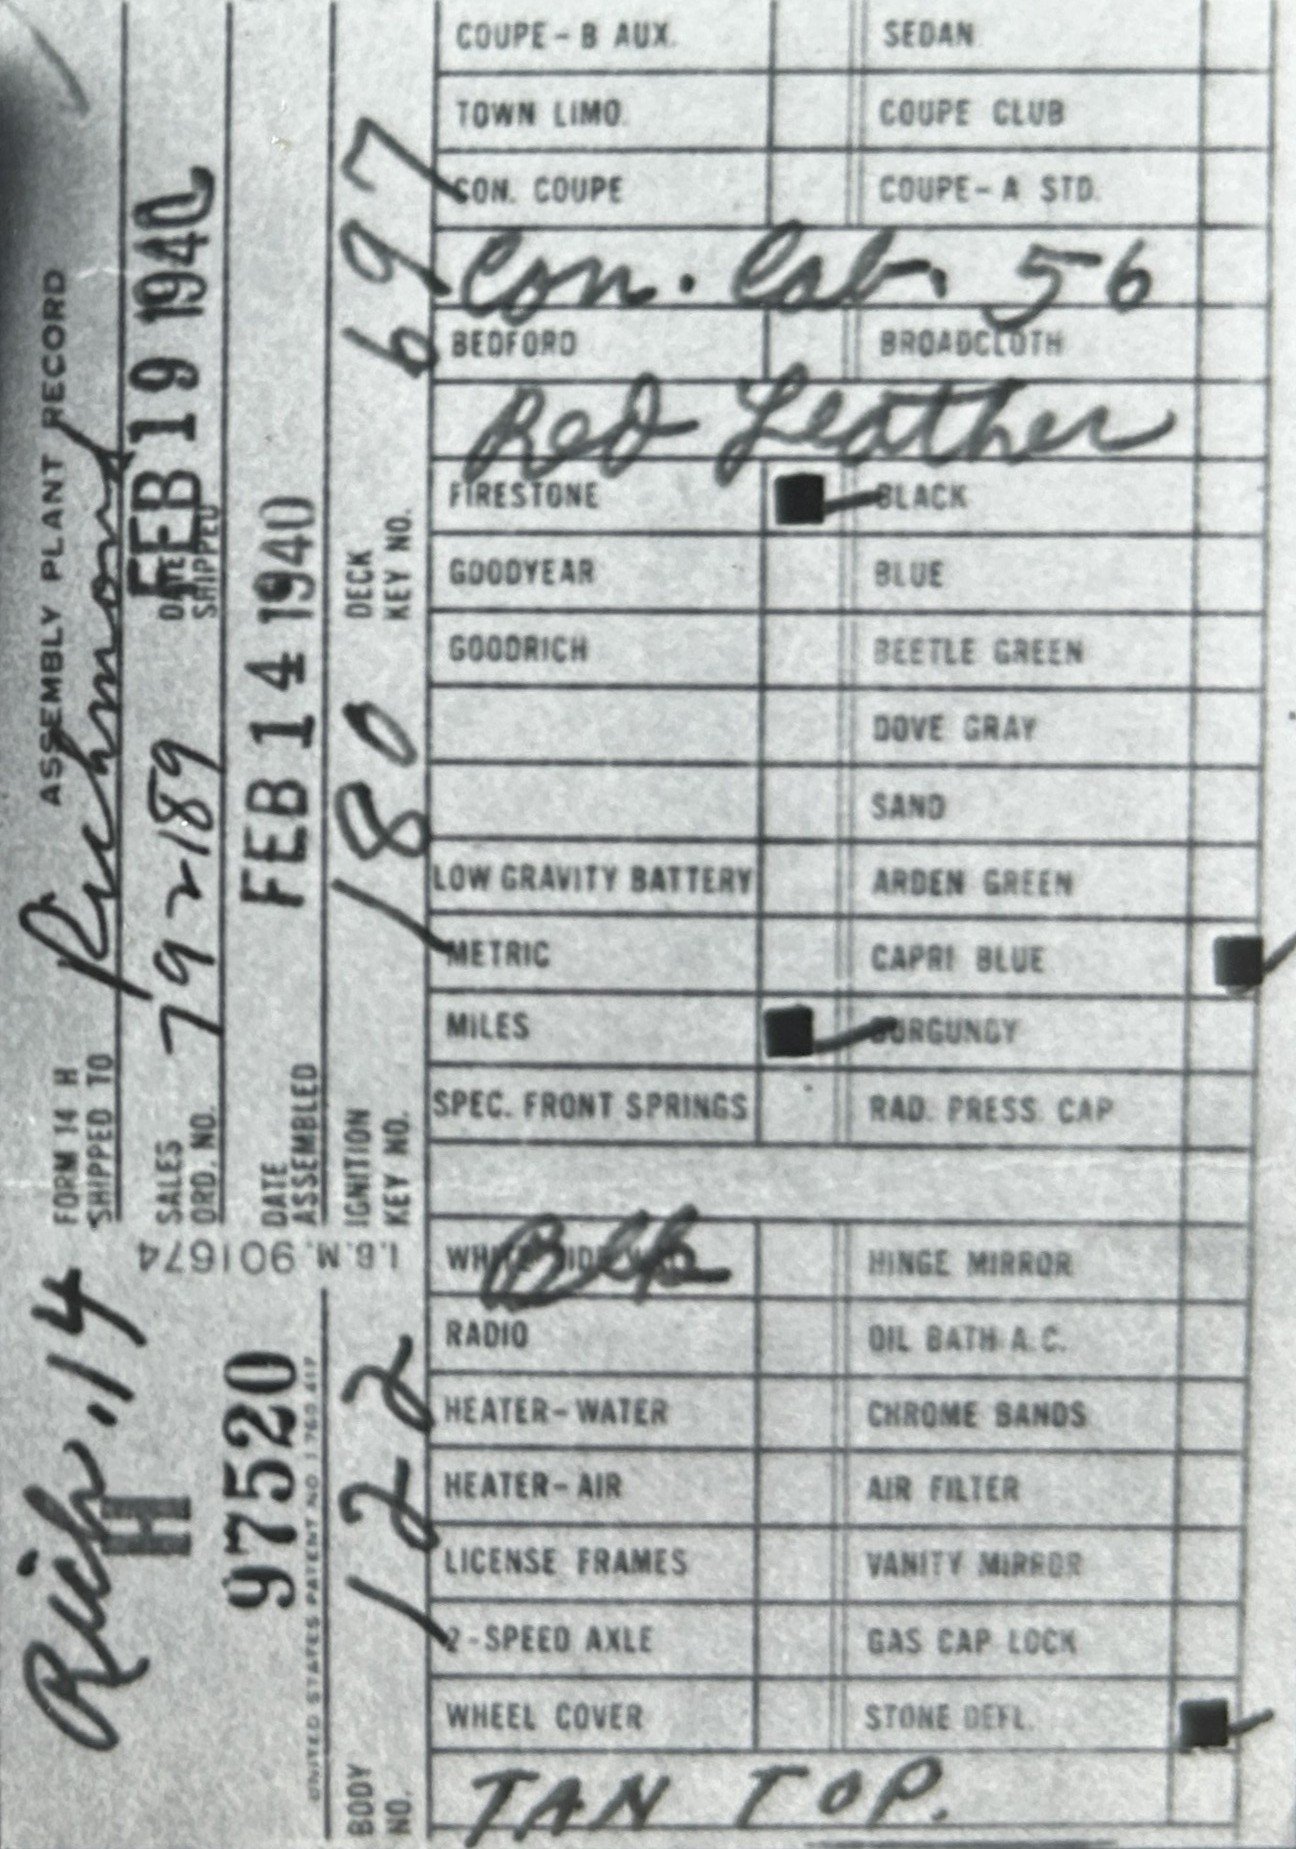 ASSEMBLY PLANT RECORD
FORM 14 H
SHIPPED TO Richmond
SALES ORD. NO. 792189
DATE SHIPPED FEB 19 1940
DATE ASSEMBLED FEB 14 1940
IGNITION KEY NO. 180
DECK KEY NO. 697
Rich. 14
H
I.B.M. 901674
97520
UNITED STATES PATENT NO. 1 760 417
BODY NO. 122
COUPE-B AUX. SEDAN
TOWN LIMO. COUPE CLUB
CON. COUPE COUPE-A STD.
Con. Cab. 56
BEDFORD BROADCLOTH
Red Leather
FIRESTONE BLACK
GOODYEAR BLUE
GOODRICH BEETLE GREEN
DOVE GRAY
SAND
LOW GRAVITY BATTERY ARDEN GREEN
METRIC CAPRI BLUE
MILES BURGUNDY
SPEC. FRONT SPRINGS RAD. PRESS. CAP
Blk
HINGE MIRROR
RADIO OIL BATH A.C.
HEATER-WATER CHROME BANDS
HEATER-AIR AIR FILTER
LICENSE FRAMES VANITY MIRROR
2-SPEED AXLE GAS CAP LOCK
WHEEL COVER STONE DEFL.
TAN TOP.